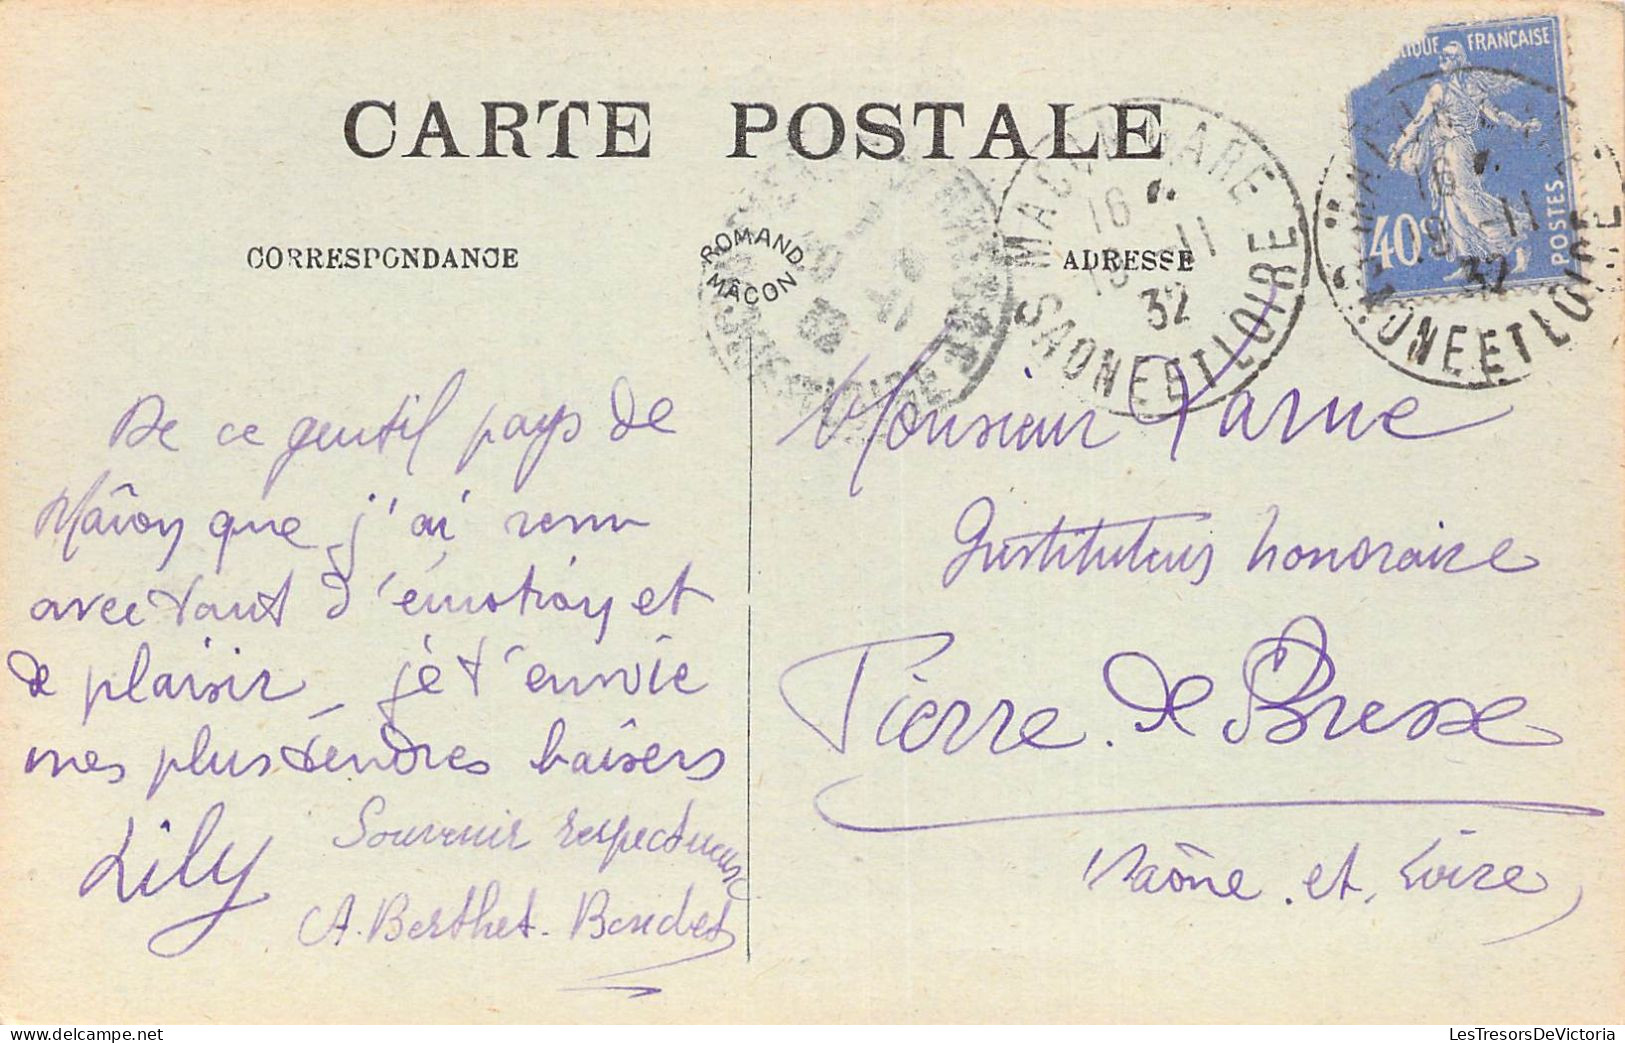 CARTE POSTALE
CORRESPONDANCE
ROMAND
MÂCON
ADRESSE
MACON GARE
16
11
32
SAONE ET LOIRE
FRANÇAISE
40c
POSTES
16
19 -11
32
De ce gentil pays de
Mâcon que j'ai revu
avec tant d'émotion et
de plaisir, je t'envoie
mes plus tendres baisers
Lily
Souvenir respectueux
A. Berthet.
Monsieur
Instituteur honoraire
Pierre. de Bresse
Saône. et. Loire
LesTresorsDeVictoria.com